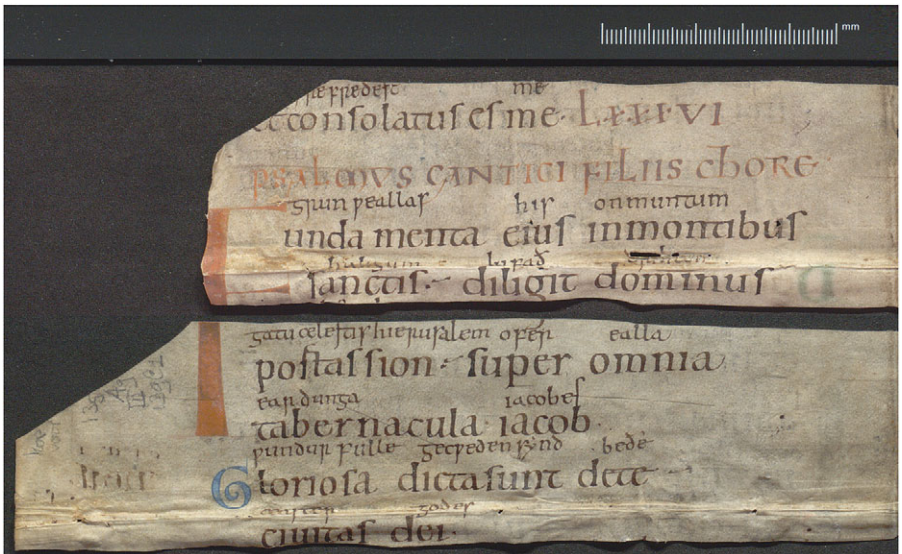 mm
frefredest me
et consolatus es me. LXXXVI
PSALMVS CANTICI FILIIS CHORE
grunweallas his onmuntum
unda menta eius inmontibus
halegum lufað
sanctis. diligit dominus
gatu celestis hierusalem ofer ealla
portas sion. super omnia
eardunga iacobes
tabernacula iacob.
wundur fulle gecweden synd be ðe
Gloriosa dicta sunt dete
godes
ciuitas dei.